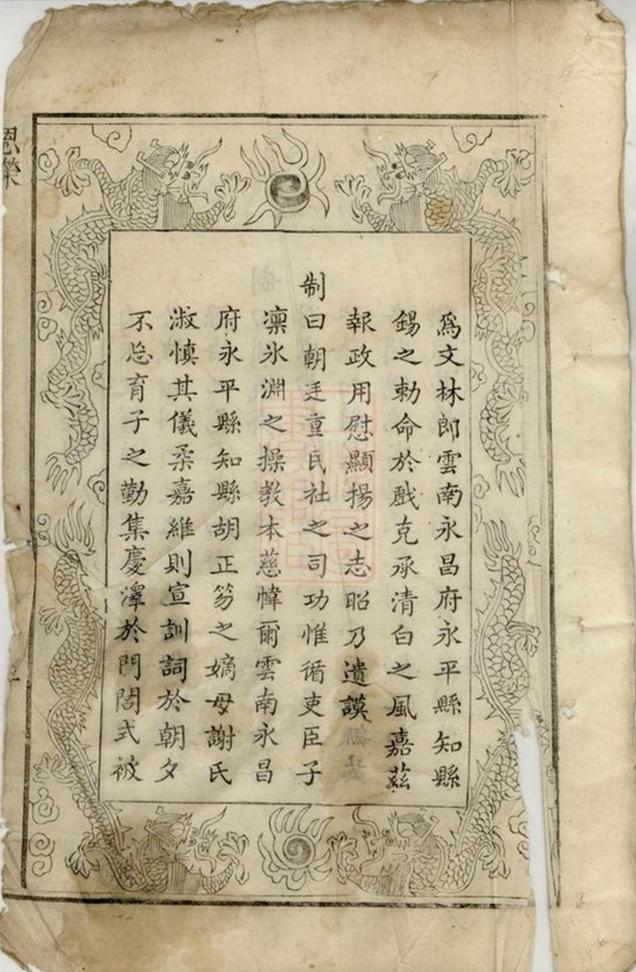 為文林郎雲南永昌府永平縣知縣
錫之勅命於戲克承清白之風嘉茲
報政用慰顯揚之志昭乃遺謨
制曰朝廷重民社之司功惟循吏臣子
凜氷淵之操教本慈幃爾雲南永昌
府永平縣知縣胡正笏之嫡母謝氏
淑慎其儀柔嘉維則宣訓詞於朝夕
不忘育子之勤集慶澤於門閭式被
恩榮